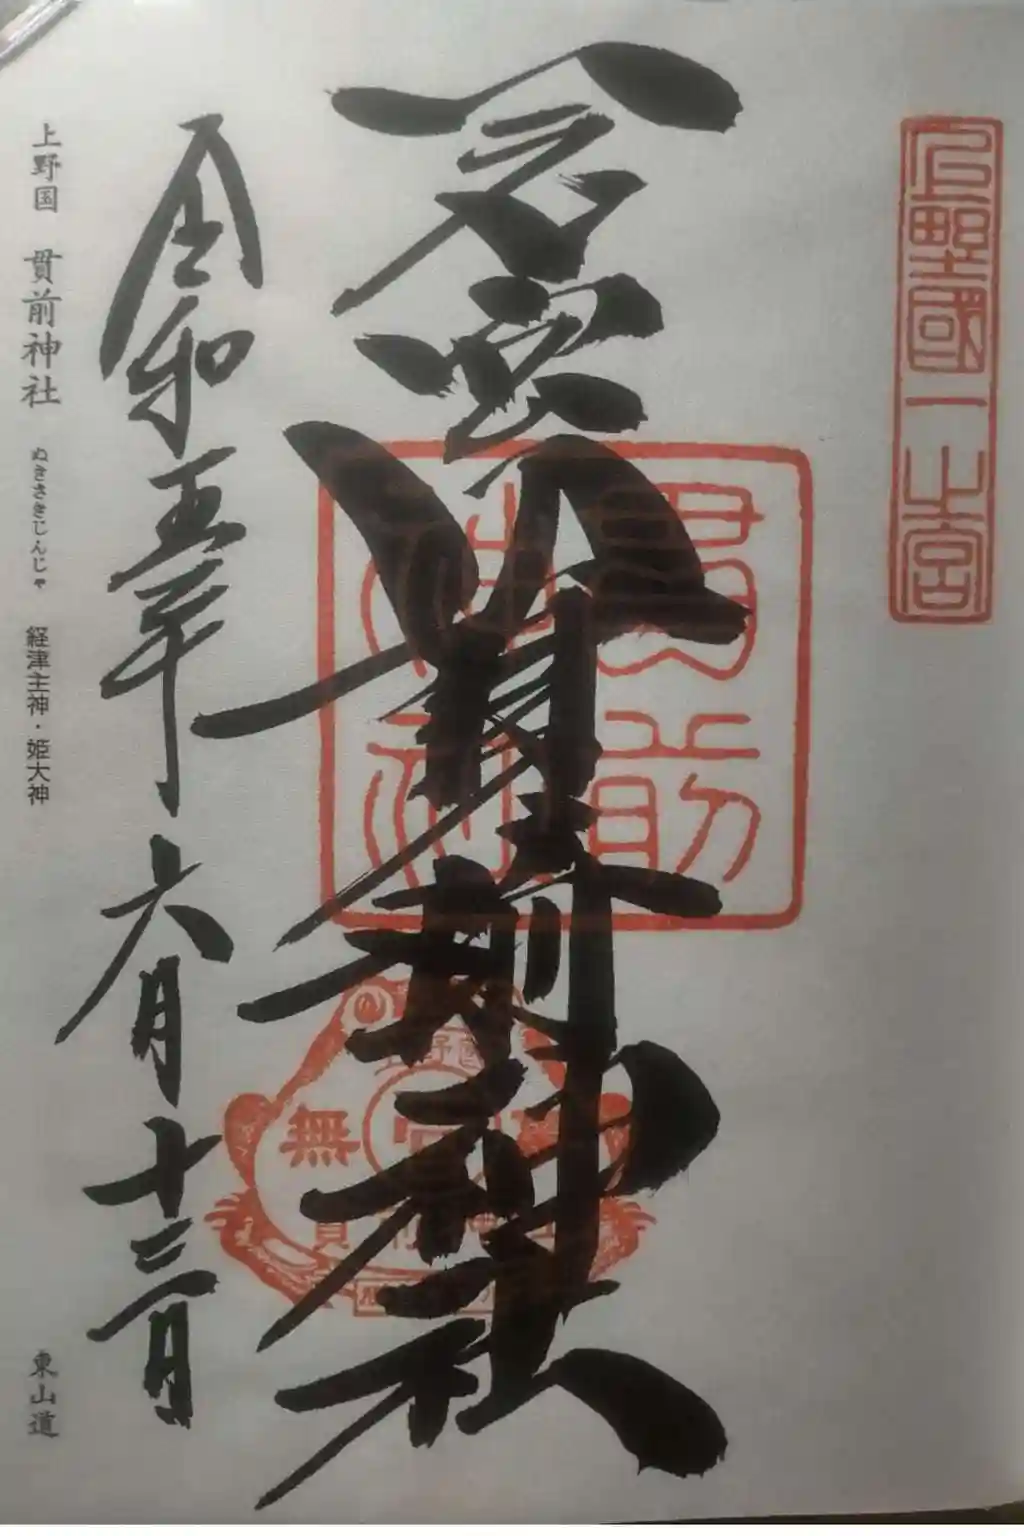 上野國一之宮
一之宮 貫前神社
貫前神社
上野國
無
貫前神社
令和五年 六月 十三日
上野国 貫前神社 ぬきさきじんじゃ 経津主神・姫大神 東山道